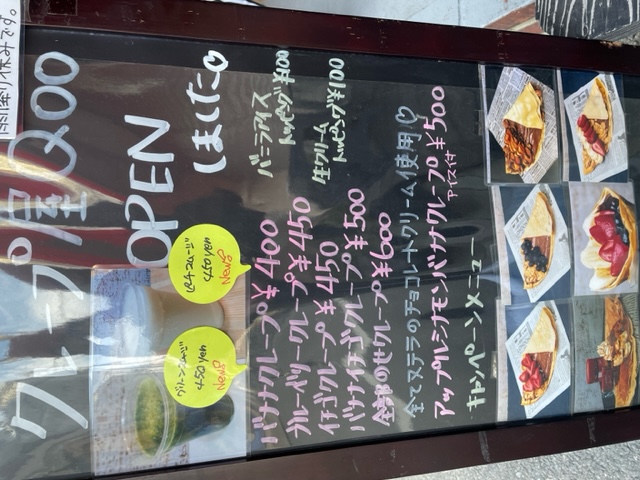 クレープ屋QOO
OPEN
しました♡
バニラアイス
トッピング¥100
生クリーム
トッピング¥100
450yen
New
グリーン
450yen
New
バナナクレープ¥400
ブルーベリークレープ¥450
イチゴクレープ¥450
バナナイチゴクレープ¥500
全部のせクレープ¥600
全てステラのチョコレートクリーム使用♡
アップルシナモンバナナクレープ¥500
アイス付
キャンペーンメニュー
休みです。